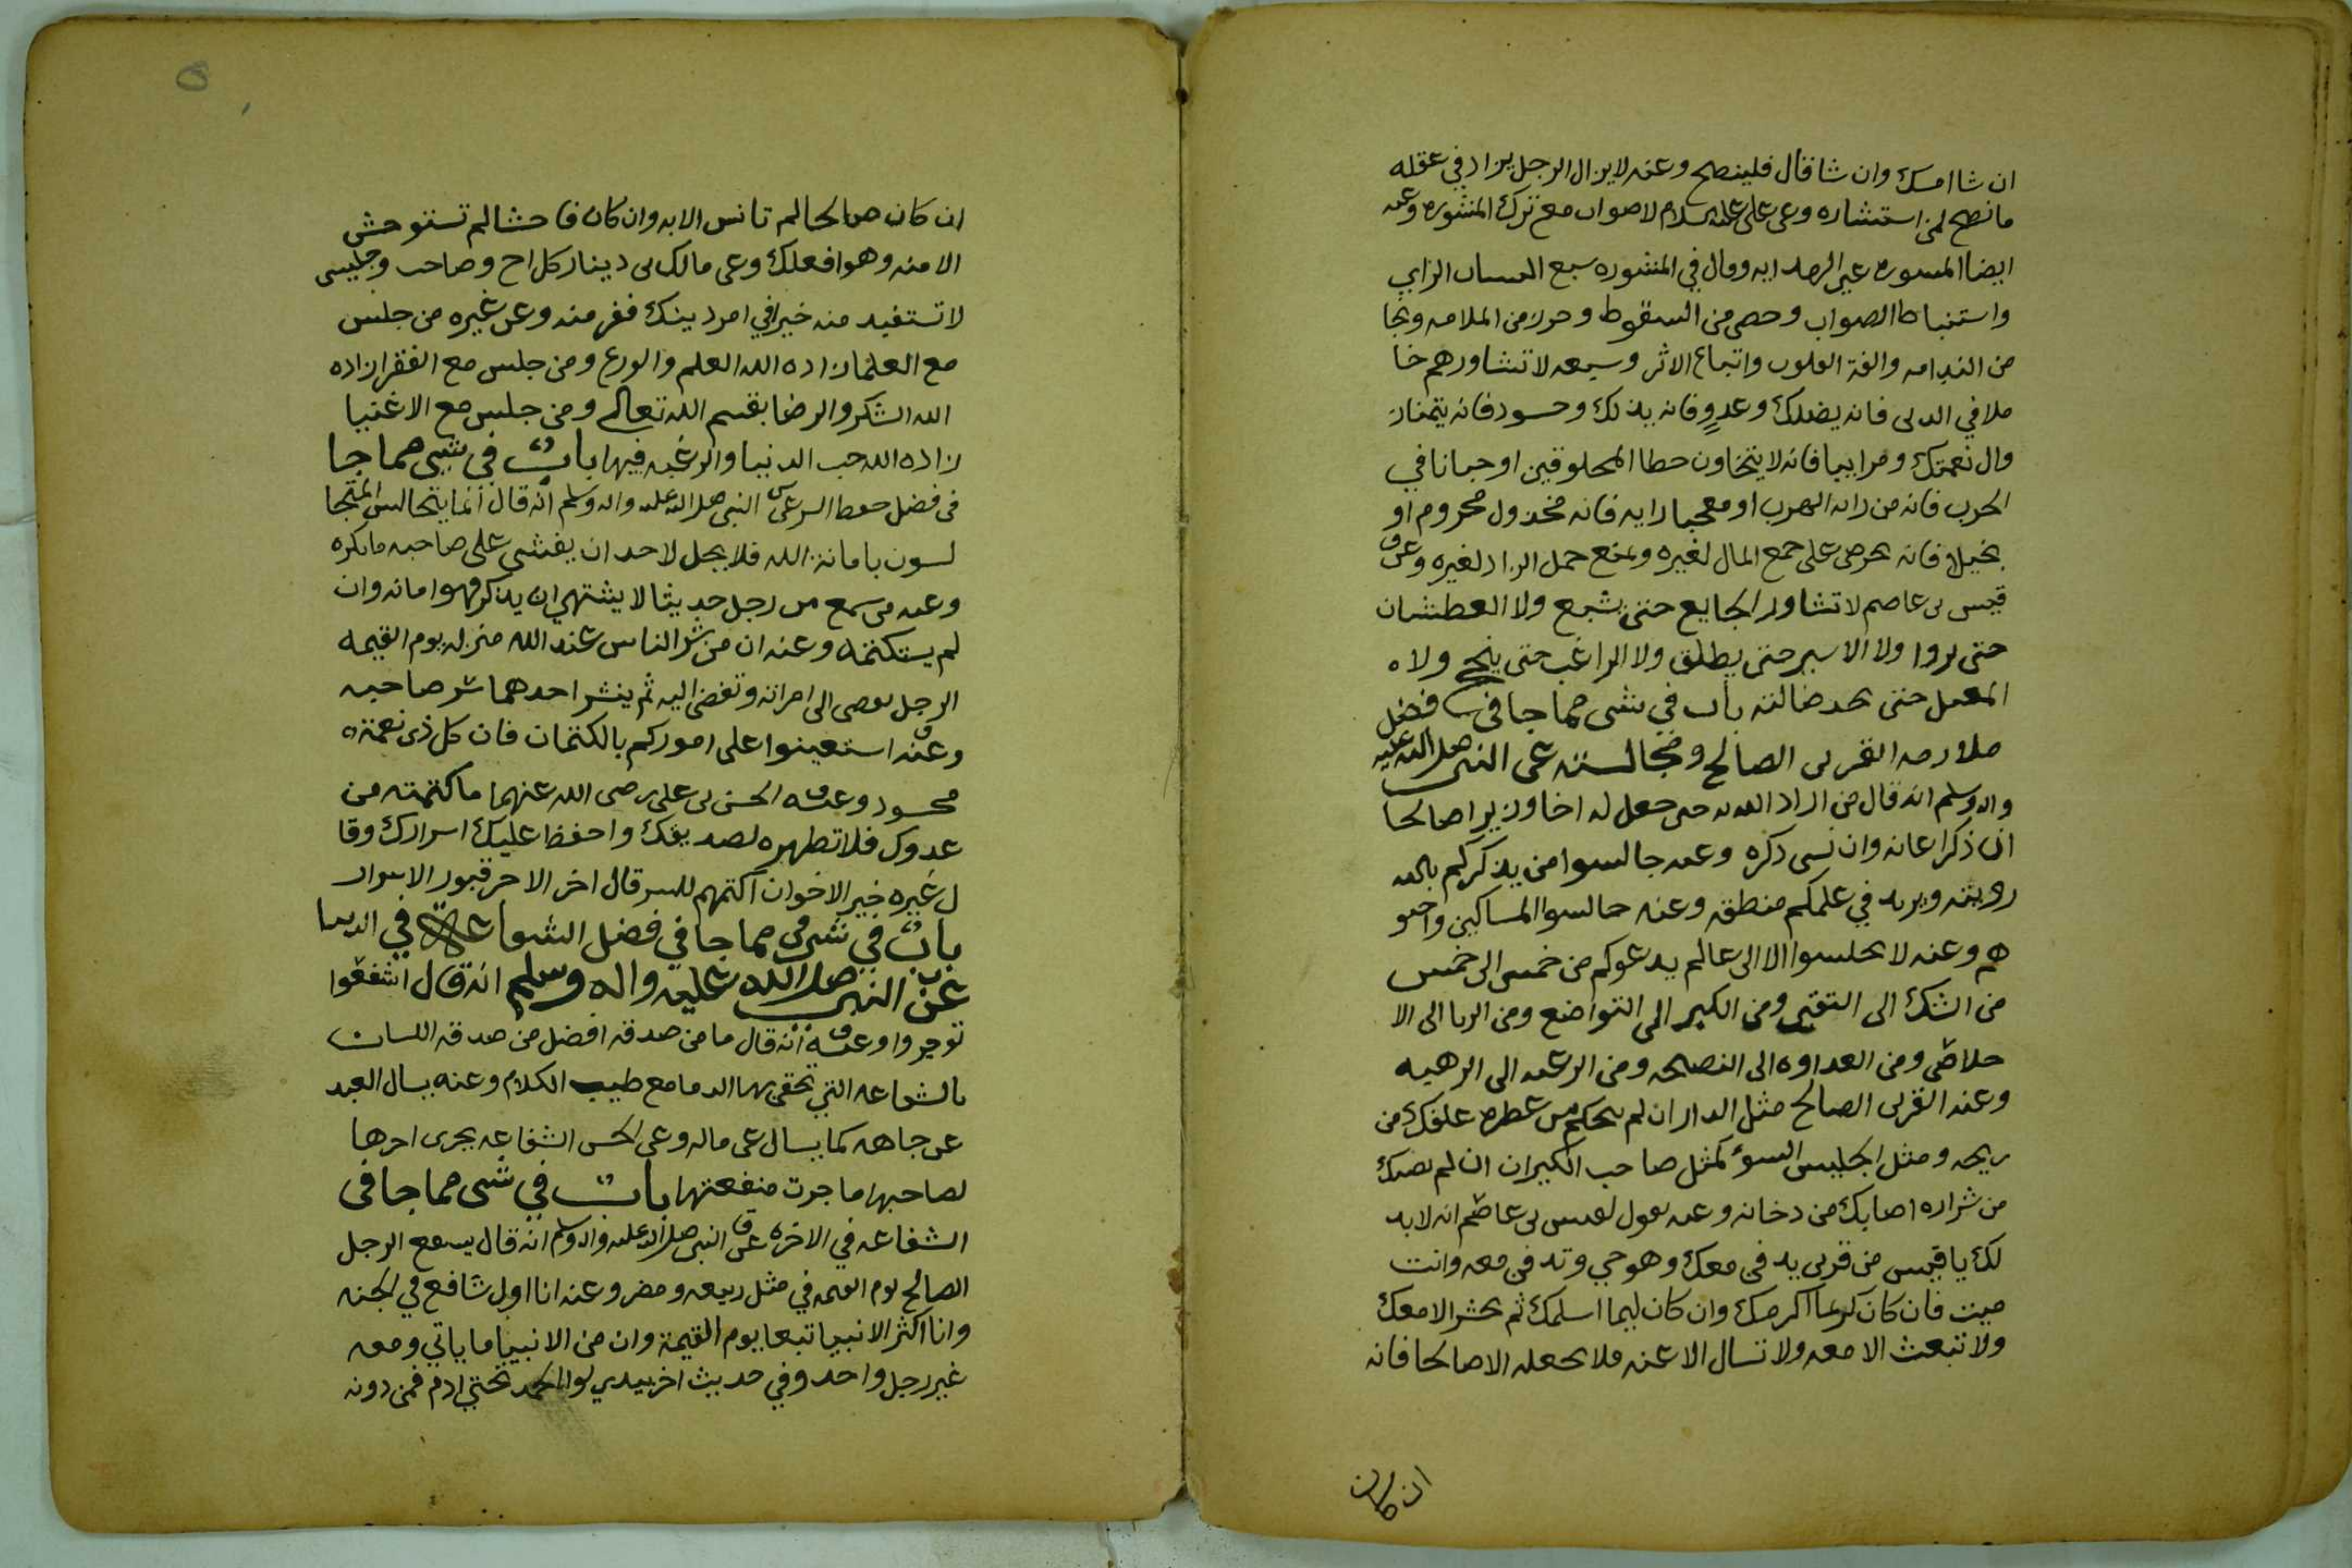 ان شا امسك وان شا قال فلينصح وعنه لا يزال الرجل يزاد في عقله
ما نصح لمن استشاره وعن علي عليه السلام لا صواب مع ترك المشوره وعنه
ايضا المسوره عين الهدايه وقال في المشوره سبع الراي
واستنباط الصواب وحصن من السقوط وحرز من الملامه ونجا
من الندامه والفة القلوب واتباع الاثر وسبعه لا تشاورهم جا
ملا في الدين فانه يضلك وعدو فانه يذلك وحسود فانه يتمنا ز
وال نعمتك ومراييا فانه لا يتجاوز المخلوقين او جبانا في
الحرب فانه من رايه الهرب او معجبا رايه فانه مخذول محروم او
بخيلا فانه يحرص على جمع المال لغيره ويمنع حمل الزاد لغيره وعن
قيس بن عاصم لا تشاور الجايع حتى يشبع ولا العطشان
حتى يروا ولا الاسير حتى يطلق ولا الراغب حتى ينجح ولا ه
المضل حتى يجد ضالته باب في شي مما جا في فضل
ملازمه القرين الصالح ومجالسته عن النبي صلى الله عليه
واله وسلم انه قال من اراد الله به خير جعل له اخا وزيرا صالحا
ان ذكر اعانه وان نسي ذكره وعنه جالسوا من يذكركم بالله
رويته ويزيد في علمكم منطقه وعنه جالسوا المساكين واحبو
هم وعنه لا تجلسوا الا الى عالم يدعوكم من خمس الى خمس
من الشك الى التقين ومن الكبر الى التواضع ومن الريا الى الا
خلاص ومن العداوه الى النصيحه ومن الرغبه الى الرهبه
وعنه القرين الصالح مثل الدار ان لم من عطره علقك من
ريحه ومثل الجليس السوء كمثل صاحب الكيران ان لم يصبك
من شراره اصابك من دخانه وعنه يقول لقيس بن عاصم انه لا بد
لك يا قيس من قرين يدفن معك وهو حي وتدفن معه وانت
ميت فان كان كريما اكرمك وان كان ليما اسلمك ثم يحشر الا معك
ولا تبعث الا معه ولا تسال الا عنه فلا تجعله الا صالحا فانه
ان كان
ان كان صالحا لم تانس الا به وان كان فاحشا لم تستوحش
الا منه وهو افعلك وعن مالك بن دينار كل اخ وصاحب وجليس
لا تستفيد منه خيرا في امر دينك ففر منه وعن غيره من جلس
مع العلما زاده الله العلم والورع ومن جلس مع الفقرا زاده
الله الشكر والرضا بقسم الله تعالى ومن جلس مع الاغنيا
زاده الله حب الدنيا والرغبه فيها باب في شي مما جا
في فضل حفظ السر عن النبي صلى الله عليه واله وسلم انه قال انما يتجالس المتجا
لسون بامانة الله فلا يحل لاحد ان يفشي على صاحبه ما يكره
وعنه من سمع من رجل حديثا لا يشتهي ان يذكر فهو امانه وان
لم يستكتمه وعنه ان من شر الناس عند الله منزله يوم القيمه
الرجل يفضي الى امراته وتفضي اليه ثم ينشر احدهما سر صاحبه
وعنه استعينوا على اموركم بالكتمان فان كل ذي نعمة ه
محسود وعنه الحسن بن علي رضي الله عنهما ما كتمته من
عدوك فلا تطهره لصديقك واحفظ عليك اسرارك وقا
ل غيره خير الاخوان اكتمهم للسر قال اخر الاحر قبور الاسرار
باب في شي مما جا في فضل الشفاعة في الدنيا
عن النبي صلى الله عليه واله وسلم انه قال اشفعوا
توجروا وعنه انه قال ما من صدقه افضل من صدقه اللسان
بالشفاعه التي تحقن بها الدما مع طيب الكلام وعنه يسال العبد
عن جاهه كما يسال عن ماله وعن الحسن الشفاعه يجري اجرها
لصاحبها ما جرت منفعتها باب في شي مما جا في
الشفاعه في الاخره عن النبي صلى الله عليه واله وسلم انه قال يسفع الرجل
الصالح يوم القيمه في مثل ربيعه ومضر وعنه انا اول شافع في الجنه
وانا اكثر الانبيا تبعا يوم القيمة وان من الانبيا ما ياتي ومعه
غير رجل واحد وفي حديث اخر بيدي لوا الحمد تحتي ادم فمن دونه